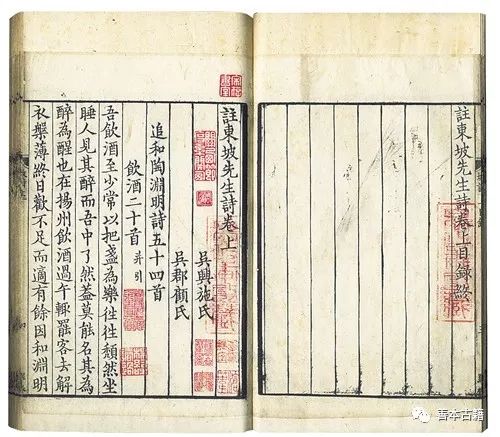 註東坡先生詩卷上目錄終
註東坡先生詩卷上
吳興施氏
吳郡顧氏
追和陶淵明詩五十四首
飲酒二十首并引
吾飲酒至少常以把盞為樂往往頹然坐
睡人見其醉而吾中了然蓋莫能名其為
醉為醒也在揚州飲酒過午輒罷客去解
衣槃薄終日歡不足而適有餘因和淵明
善本古籍